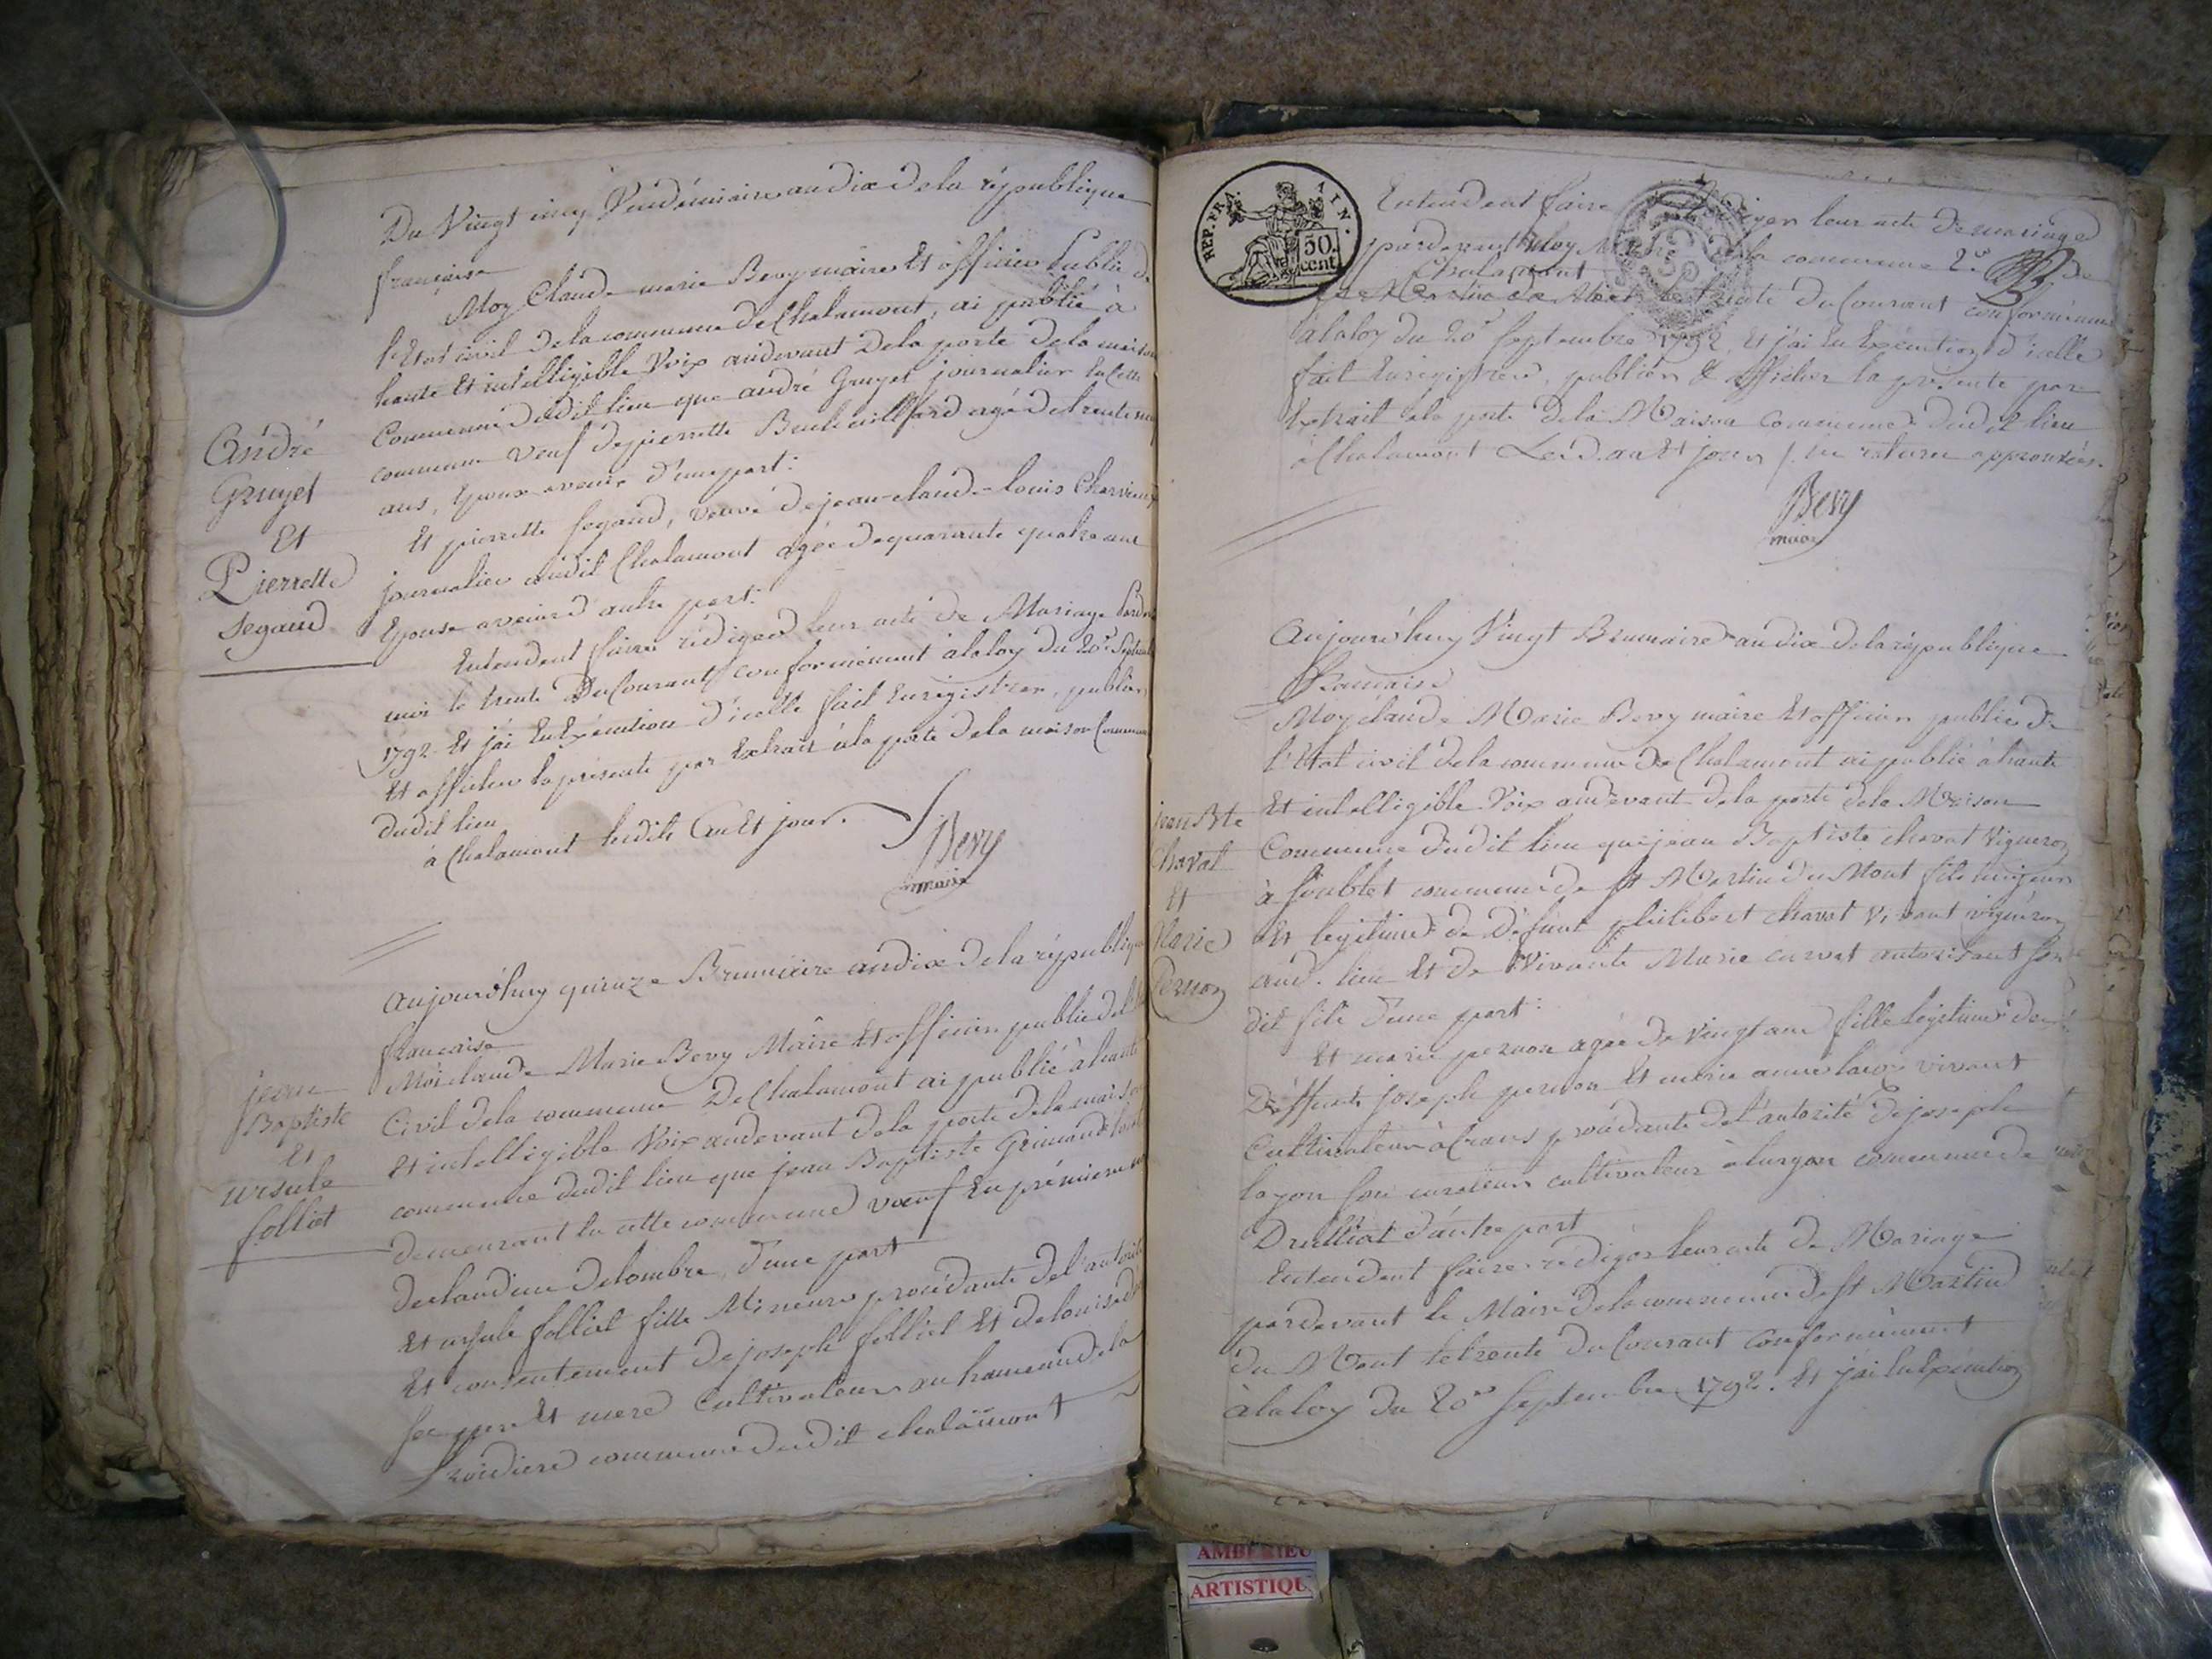 Du Vingt cinq Vendémiaire an dix de la république
française
Moy Claude marie Bevy maire Et officier Public de
l'Etat civil de la commune de Chalamont, ai publié à
haute Et intelligible Voix audevant de la porte de la maison
Commune dudit lieu que andré Gruyet journalier En Cette
commune Veuf de pierrette agé de trente
ans, Epoux avenir d'une part:
Et pierrette segaud, veuve de jean-claude-louis
journalier audit Chalamont agée de quarante quatre ans
Epouse avenir d'autre part:
Entendent faire rédiger leur acte de Mariage
moi le trente Du Courant conformément à la loy du 20e
1792. Et j'ai En Exécution d'icelle fait Enregistrer, publier
Et afficher la présente par Extrait à la porte de la maison Commune
dudit lieu
à Chalamont lesdits an Et jour.
Bevy
maire
André
Gruyet
Et
Pierrette
Segaud
aujourd'huy quinze Brumaire an dix de la république
française
Moi claude Marie Bevy Maire Et officier public de
Civil de la commune De Chalamont ai publié à haute
Et intelligible Voix audevant de la porte de la maison
commune dudit lieu que jean Baptiste Grimaud
demeurant En cette commune Veuf En prémiere
de claudine Delombre, d'une part
Et ursule folliet fille Mineure procédante de l'autorité
Et consentement de joseph folliet Et de louise
ses pere Et mere Cultivateurs au hameau de la
commune dudit chalamont
jean
Baptiste
Et
ursule
folliet
REP. FRA. AIN.
50.
cent.
Entendent faire rediger leur acte de mariage
pardevant Moy Maire de la commune de
Chalamont
le trente du Courant conformément
à la loy du 20e Septembre 1792. Et j'ai En Exécution d'icelle
fait Enregistrer, publier & afficher la présente par
Extrait à la porte de la Maison Commune dudit lieu
à Chalamont Lesd. an Et jour approuvées.
Bevy
maire
Aujourd'huy Vingt Brumaire an dix de la république
Française
Moy claude Marie Bevy maire Et officier public de
l'Etat civil de la commune de Chalamont ai publié à haute
Et intelligible Voix audevant de la porte de la Maison
Commune dudit lieu que jean Baptiste chavat Vigneron
à soublet commune de St Martin du Mont fils majeur
Et legitime de Défunt philibert chavat Vivant vigneron
aud. lieu Et de Vivante Marie curvat autorisant son
dit fils d'une part:
Et marie pernon agée de Vingt ans fille legitime de
Déffunts joseph pernon Et marie anne vivant
Cultivateurs à Crans procédante de l'autorité de joseph
layon son curateur cultivateur à turgon commune de
Druillat d'autre part
Entendent faire rédiger leur acte de Mariage
pardevant le Maire de la commune de St Martin
du Mont le trente du Courant Conformément
à la loy du 20e Septembre 1792. Et j'ai En Exécution
jean Bte
Chavat
Et
Marie
Pernon
AMBERIEU
ARTISTIQU